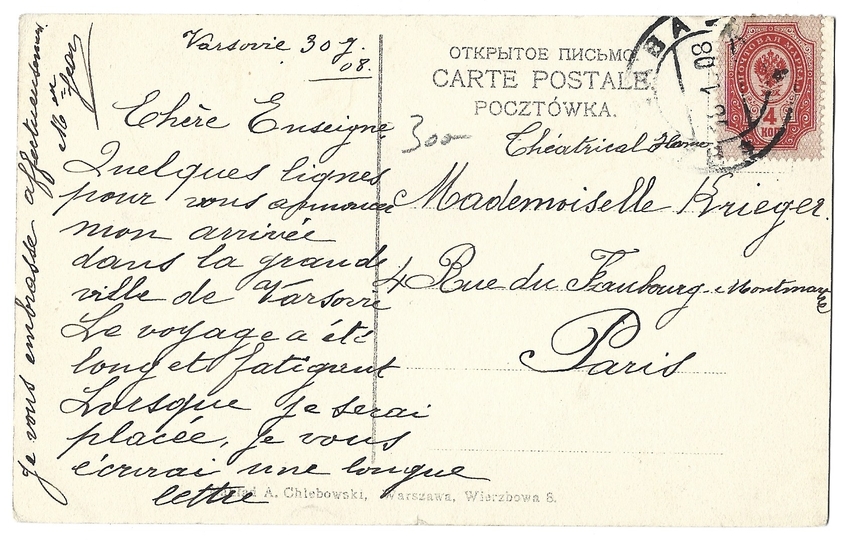 Varsovie 30 J.
08.
Chère Enseigne
Quelques lignes
pour vous annoncer
mon arrivée
dans la grande
ville de Varsovie
Le voyage a été
long et fatigant
Lorsque je serai
placée, je vous
écrirai une longue
lettre
Je vous embrasse affectueusement
ОТКРЫТОЕ ПИСЬМО
CARTE POSTALE
POCZTÓWKA.
300
Théatrical Home
Mademoiselle Krieger.
4 Rue du Faubourg-Montmartre
Paris
A. Chlebowski, Warszawa, Wierzbowa 8.
ПОЧТОВАЯ МАРКА
4
КОП
ВА
08